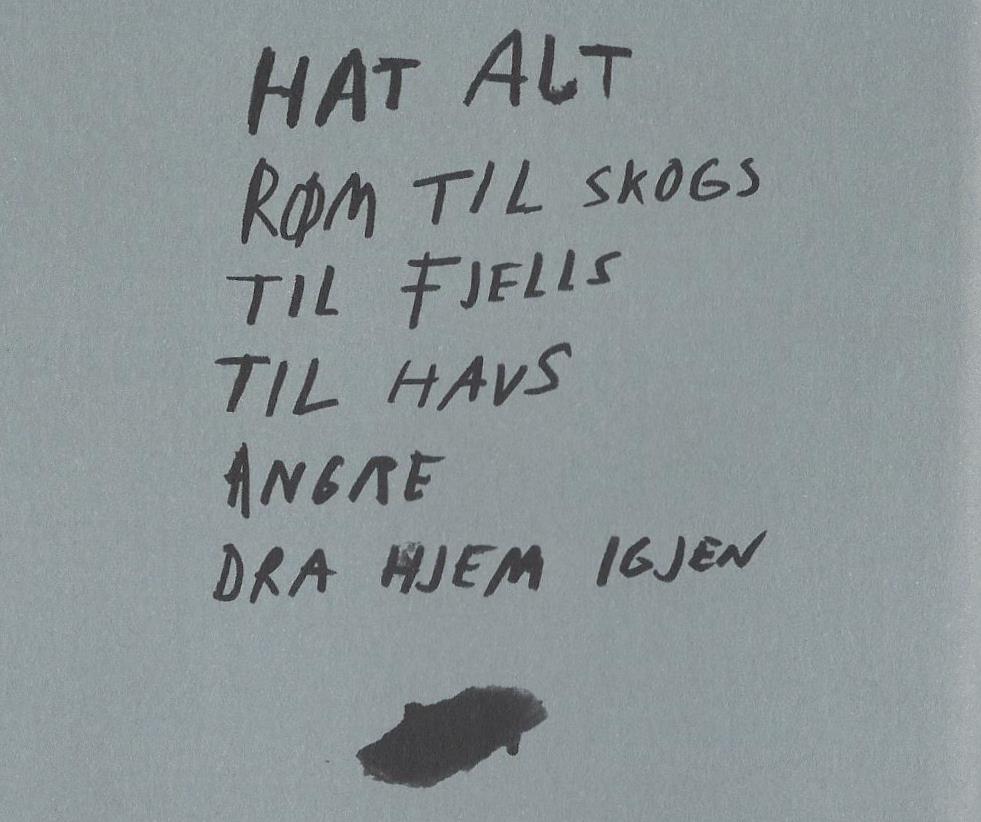 HAT ALT
RØM TIL SKOGS
TIL FJELLS
TIL HAVS
ANGRE
DRA HJEM IGJEN